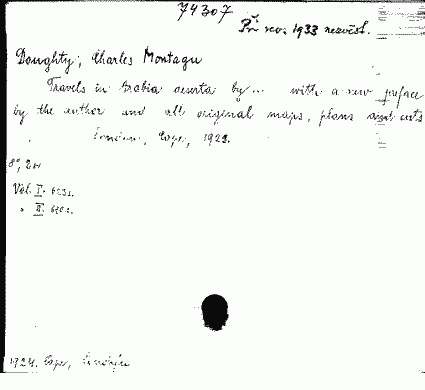 74307
Při rev. 1933 nezvěst.
Doughty, Charles Montagu
Travels in Arabia deserta by... with a new preface
by the author and all original maps, plans and cuts
London, Cape, 1923.
8°, 2 sv
Vol. I. 623 s.
" II. 690 s.
1924. Cape, Londýn